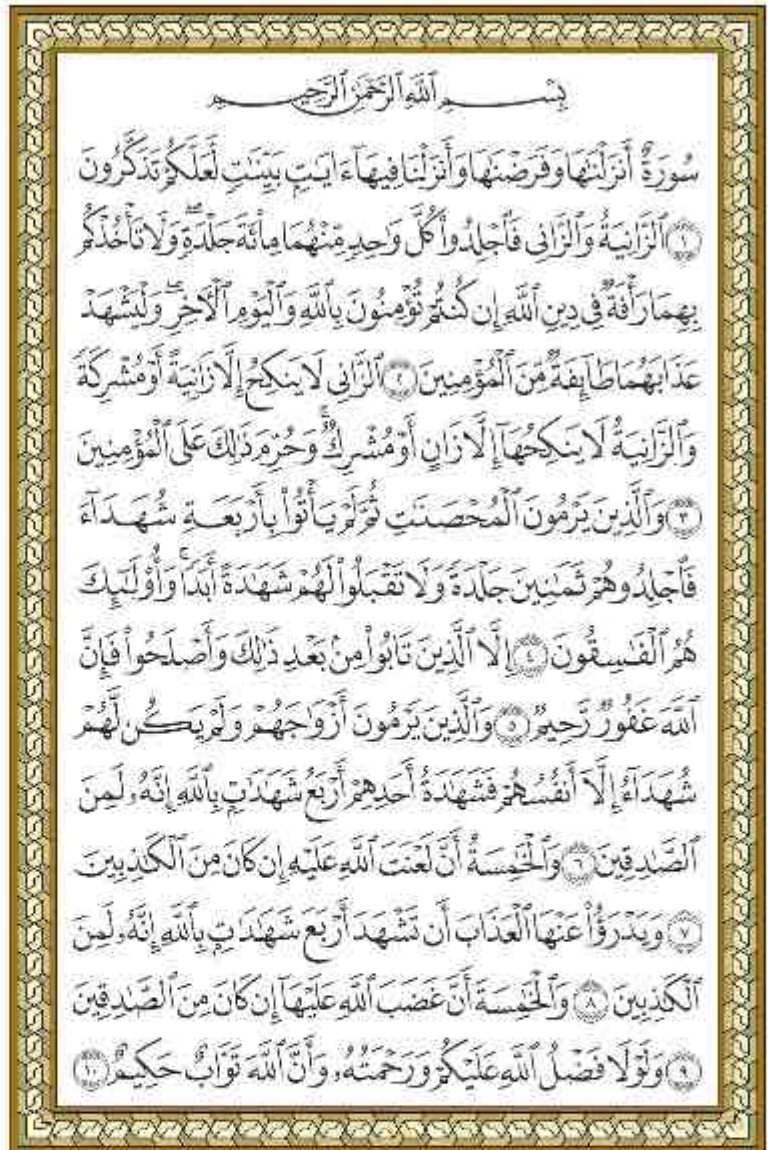 بِسْمِ ٱللَّهِ ٱلرَّحْمَٰنِ ٱلرَّحِيمِ
سُورَةٌ أَنزَلْنَٰهَا وَفَرَضْنَٰهَا وَأَنزَلْنَا فِيهَآ ءَايَٰتٍۭ بَيِّنَٰتٍ لَّعَلَّكُمْ تَذَكَّرُونَ
١ ٱلزَّانِيَةُ وَٱلزَّانِى فَٱجْلِدُوا۟ كُلَّ وَٰحِدٍ مِّنْهُمَا مِا۟ئَةَ جَلْدَةٍۖ وَلَا تَأْخُذْكُم
بِهِمَا رَأْفَةٌ فِى دِينِ ٱللَّهِ إِن كُنتُمْ تُؤْمِنُونَ بِٱللَّهِ وَٱلْيَوْمِ ٱلْءَاخِرِۖ وَلْيَشْهَدْ
عَذَابَهُمَا طَآئِفَةٌ مِّنَ ٱلْمُؤْمِنِينَ ٢ ٱلزَّانِى لَا يَنكِحُ إِلَّا زَانِيَةً أَوْ مُشْرِكَةً
وَٱلزَّانِيَةُ لَا يَنكِحُهَآ إِلَّا زَانٍ أَوْ مُشْرِكٌۚ وَحُرِّمَ ذَٰلِكَ عَلَى ٱلْمُؤْمِنِينَ
٣ وَٱلَّذِينَ يَرْمُونَ ٱلْمُحْصَنَٰتِ ثُمَّ لَمْ يَأْتُوا۟ بِأَرْبَعَةِ شُهَدَآءَ
فَٱجْلِدُوهُمْ ثَمَٰنِينَ جَلْدَةً وَلَا تَقْبَلُوا۟ لَهُمْ شَهَٰدَةً أَبَدًاۚ وَأُو۟لَٰٓئِكَ
هُمُ ٱلْفَٰسِقُونَ ٤ إِلَّا ٱلَّذِينَ تَابُوا۟ مِنۢ بَعْدِ ذَٰلِكَ وَأَصْلَحُوا۟ فَإِنَّ
ٱللَّهَ غَفُورٌ رَّحِيمٌ ٥ وَٱلَّذِينَ يَرْمُونَ أَزْوَٰجَهُمْ وَلَمْ يَكُن لَّهُمْ
شُهَدَآءُ إِلَّآ أَنفُسُهُمْ فَشَهَٰدَةُ أَحَدِهِمْ أَرْبَعُ شَهَٰدَٰتٍۭ بِٱللَّهِ إِنَّهُۥ لَمِنَ
ٱلصَّٰدِقِينَ ٦ وَٱلْخَٰمِسَةُ أَنَّ لَعْنَتَ ٱللَّهِ عَلَيْهِ إِن كَانَ مِنَ ٱلْكَٰذِبِينَ
٧ وَيَدْرَؤُا۟ عَنْهَا ٱلْعَذَابَ أَن تَشْهَدَ أَرْبَعَ شَهَٰدَٰتٍۭ بِٱللَّهِ إِنَّهُۥ لَمِنَ
ٱلْكَٰذِبِينَ ٨ وَٱلْخَٰمِسَةَ أَنَّ غَضَبَ ٱللَّهِ عَلَيْهَآ إِن كَانَ مِنَ ٱلصَّٰدِقِينَ
٩ وَلَوْلَا فَضْلُ ٱللَّهِ عَلَيْكُمْ وَرَحْمَتُهُۥ وَأَنَّ ٱللَّهَ تَوَّابٌ حَكِيمٌ ١٠